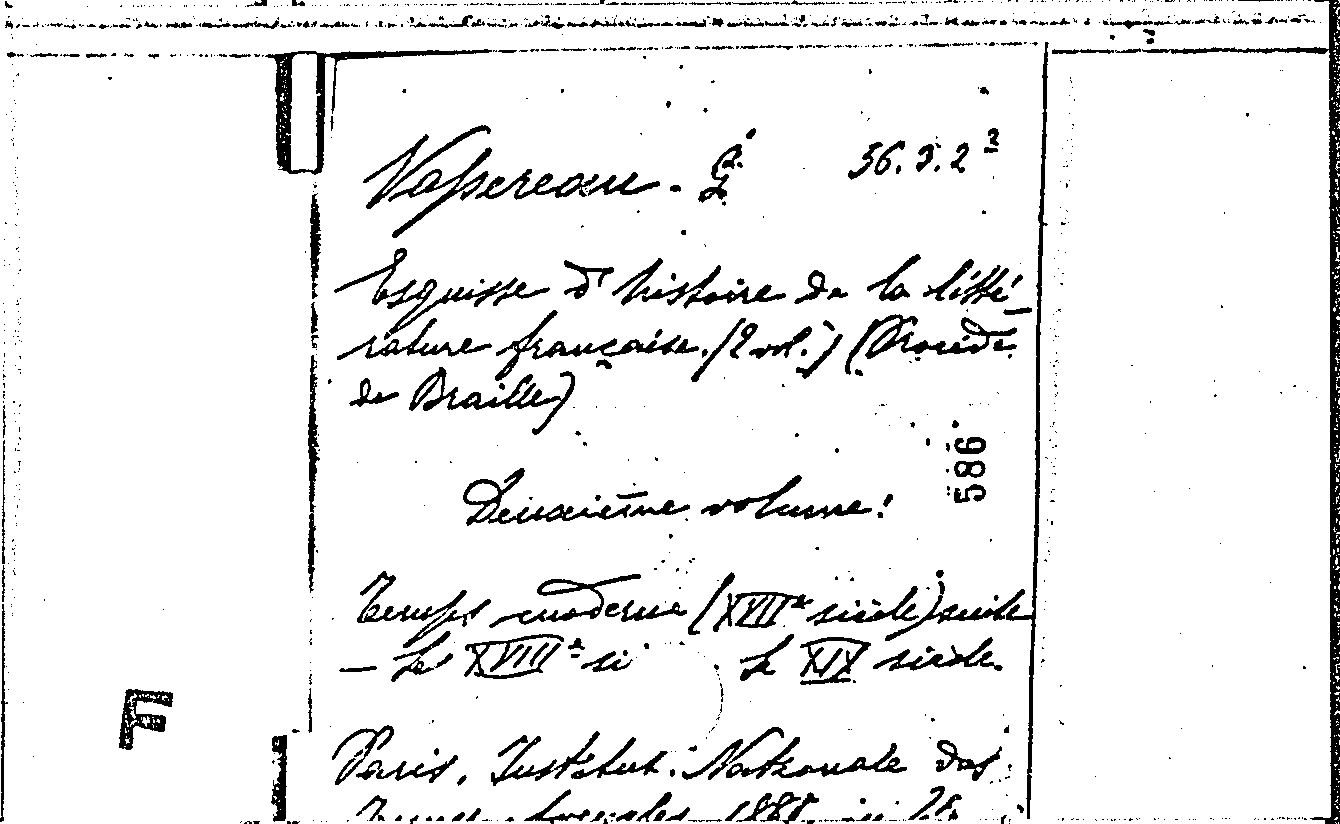 Vapereau - G. 56.3.2²
Esquisse d'histoire de la litté-
rature française. (2 vol.) (Procédé
de Braille)
586
Deuxième volume:
Temps moderne (XVIIᵉ siècle) suite
- Le XVIIIᵉ si Le XIX siècle.
F
Paris, Institut. Nationale des
Jeunes Aveugles, 188 in